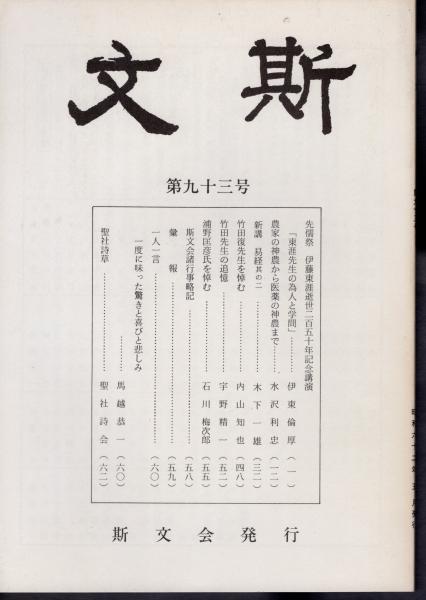 斯文
第九十三号
先儒祭 伊藤東涯逝世二百五十年記念講演
「東涯先生の為人と学問」………伊東倫厚(一)
農家の神農から医薬の神農まで………水沢利忠(一二)
新講 易経其の二………木下一雄(三二)
竹田復先生を悼む………内山知也(四八)
竹田先生の追憶………宇野精一(五二)
浦野匡彦氏を悼む………石川梅次郎(五五)
斯文会諸行事略記………(五八)
彙報………(五九)
一人一言………(六〇)
一度に味った驚きと喜びと悲しみ………馬越恭一(六〇)
聖社詩草………聖社詩会(六二)
斯文会発行